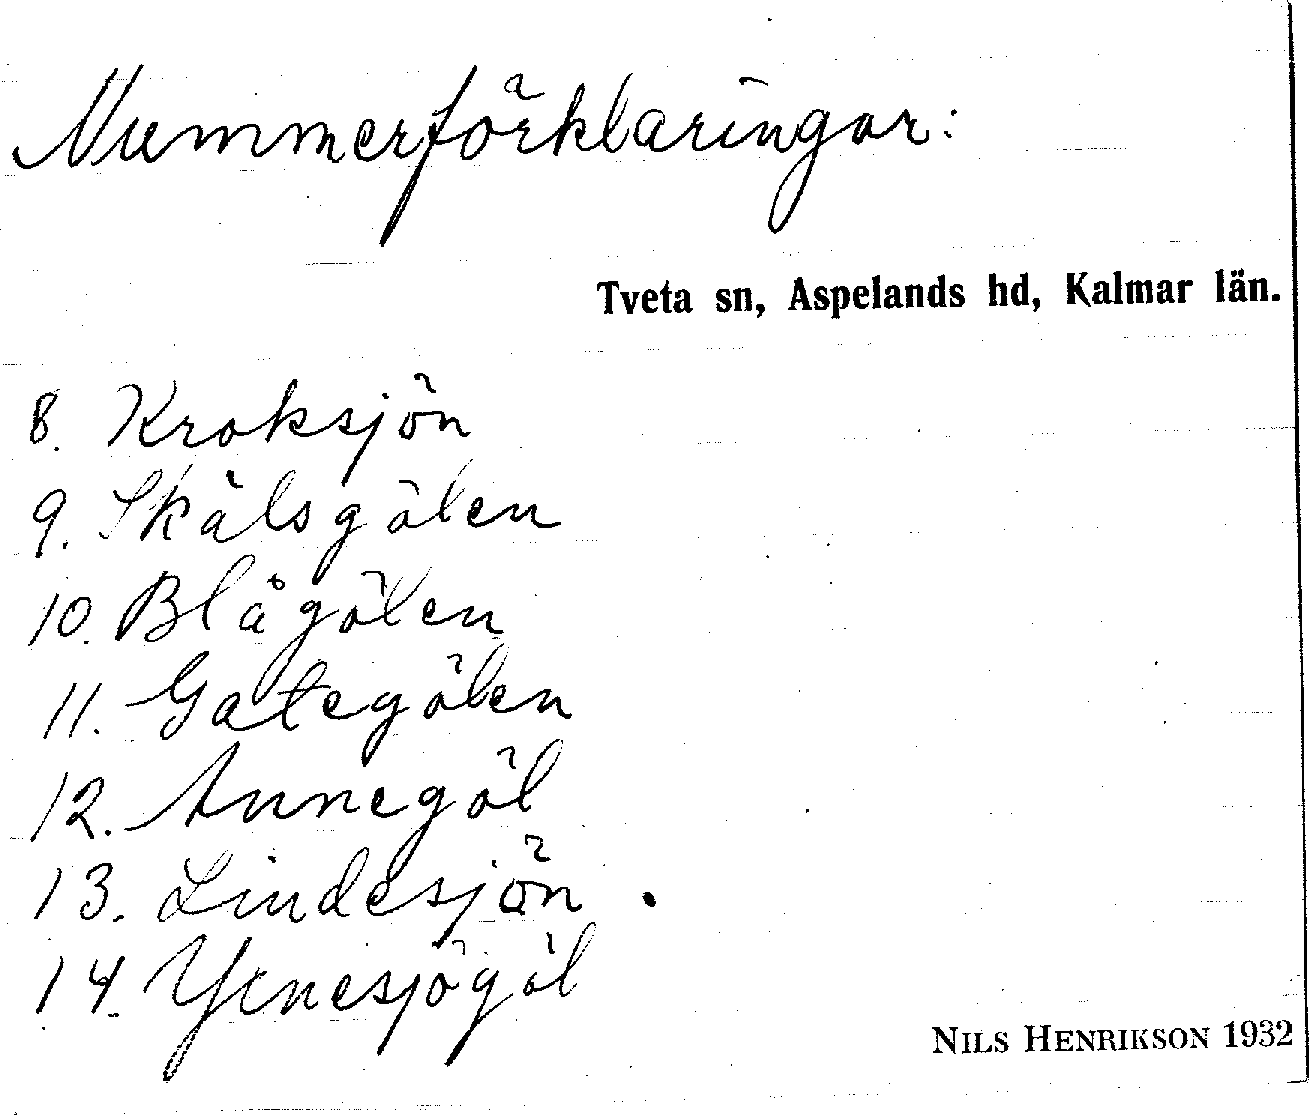 Nummerförklaringar:
Tveta sn, Aspelands hd, Kalmar län.
8. Kroksjön
9. Skälsgölen
10. Blågölen
11. Gategölen
12. Annegöl
13. Lindesjön.
14. Yenesjögöl
NILS HENRIKSON 1932